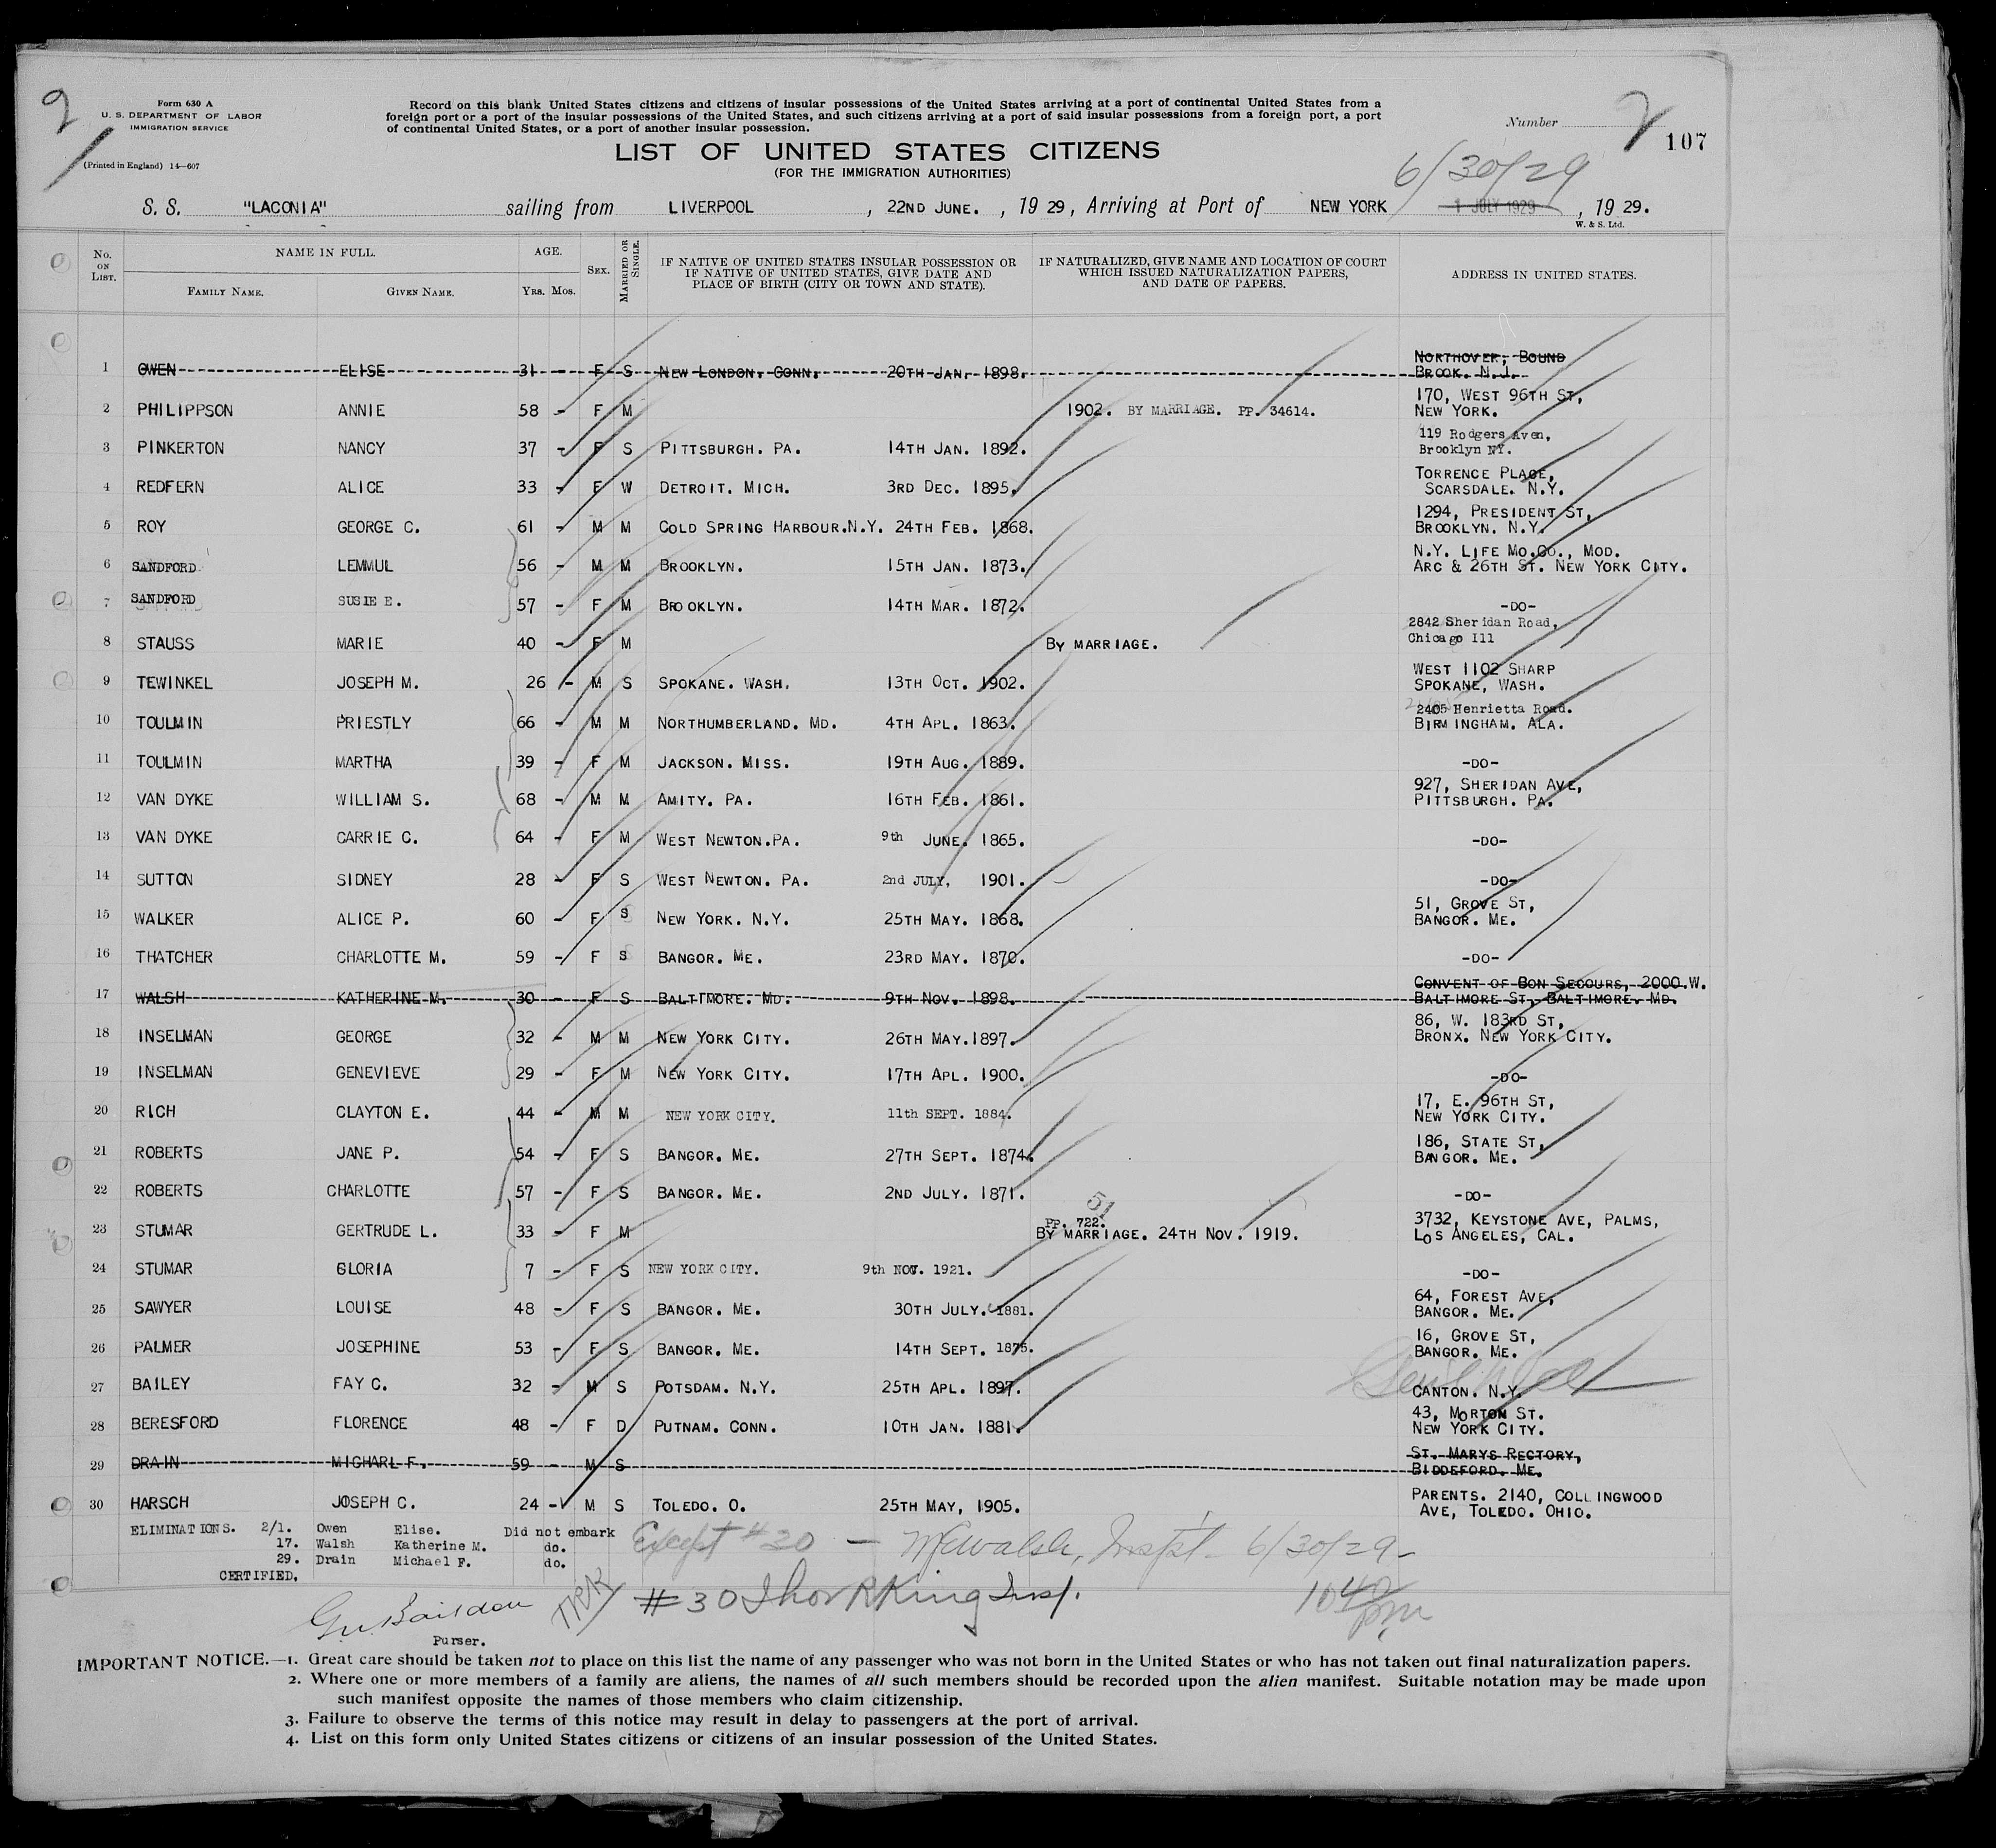 2
Form 630 A
U. S. DEPARTMENT OF LABOR
IMMIGRATION SERVICE
(Printed in England) 14—607
Record on this blank United States citizens and citizens of insular possessions of the United States arriving at a port of continental United States from a
foreign port or a port of the insular possessions of the United States, and such citizens arriving at a port of said insular possessions from a foreign port, a port
of continental United States, or a port of another insular possession.
Number 2
107
LIST OF UNITED STATES CITIZENS
(FOR THE IMMIGRATION AUTHORITIES)
6/30/29
S. S. "LACONIA" sailing from LIVERPOOL , 22ND JUNE. , 19 29, Arriving at Port of NEW YORK 1 JULY 1929 , 19 29.
W. & S. Ltd.
No. ON LIST.
NAME IN FULL.
FAMILY NAME. GIVEN NAME.
AGE.
YRS. MOS.
SEX.
MARRIED OR SINGLE.
IF NATIVE OF UNITED STATES INSULAR POSSESSION OR
IF NATIVE OF UNITED STATES, GIVE DATE AND
PLACE OF BIRTH (CITY OR TOWN AND STATE).
IF NATURALIZED, GIVE NAME AND LOCATION OF COURT
WHICH ISSUED NATURALIZATION PAPERS,
AND DATE OF PAPERS.
ADDRESS IN UNITED STATES.
1 OWEN ELISE 31 - F S NEW LONDON. CONN. 20TH JAN. 1898. NORTHOVER, BOUND
BROOK. N.J.
2 PHILIPPSON ANNIE 58 - F M 1902. BY MARRIAGE. PP. 34614. 170, WEST 96TH ST,
NEW YORK.
3 PINKERTON NANCY 37 - F S PITTSBURGH. PA. 14TH JAN. 1892. 119 Rodgers Aven,
Brooklyn NY.
4 REDFERN ALICE 33 - F W DETROIT. MICH. 3RD DEC. 1895. TORRENCE PLACE,
SCARSDALE. N.Y.
5 ROY GEORGE C. 61 - M M COLD SPRING HARBOUR.N.Y. 24TH FEB. 1868. 1294, PRESIDENT ST,
BROOKLYN. N.Y.
6 SANDFORD LEMMUL 56 - M M BROOKLYN. 15TH JAN. 1873. N.Y. LIFE MO.CO., MOD.
ARC & 26TH ST. NEW YORK CITY.
7 SANDFORD SUSIE E. 57 - F M BROOKLYN. 14TH MAR. 1872. -DO-
8 STAUSS MARIE 40 - F M BY MARRIAGE. 2842 Sheridan Road,
Chicago Ill
9 TEWINKEL JOSEPH M. 26 - M S SPOKANE. WASH. 13TH OCT. 1902. WEST 1102 SHARP
SPOKANE, WASH.
10 TOULMIN PRIESTLY 66 - M M NORTHUMBERLAND. MD. 4TH APL. 1863. 2405 Henrietta Road.
BIRMINGHAM. ALA.
11 TOULMIN MARTHA 39 - F M JACKSON. MISS. 19TH AUG. 1889. -DO-
12 VAN DYKE WILLIAM S. 68 - M M AMITY. PA. 16TH FEB. 1861. 927, SHERIDAN AVE,
PITTSBURGH. PA.
13 VAN DYKE CARRIE C. 64 - F M WEST NEWTON.PA. 9th JUNE. 1865. -DO-
14 SUTTON SIDNEY 28 - F S WEST NEWTON. PA. 2nd JULY, 1901. -DO-
15 WALKER ALICE P. 60 - F S NEW YORK. N.Y. 25TH MAY. 1868. 51, GROVE ST,
BANGOR. ME.
16 THATCHER CHARLOTTE M. 59 - F S BANGOR. ME. 23RD MAY. 1870. -DO-
17 WALSH KATHERINE M. 30 - F S BALTIMORE. MD. 9TH NOV. 1898. CONVENT OF BON SECOURS, 2000.W.
BALTIMORE ST, BALTIMORE. MD.
18 INSELMAN GEORGE 32 - M M NEW YORK CITY. 26TH MAY.1897. 86, W. 183RD ST,
BRONX. NEW YORK CITY.
19 INSELMAN GENEVIEVE 29 - F M NEW YORK CITY. 17TH APL. 1900. -DO-
20 RICH CLAYTON E. 44 - M M NEW YORK CITY. 11th SEPT. 1884. 17, E. 96TH ST,
NEW YORK CITY.
21 ROBERTS JANE P. 54 - F S BANGOR. ME. 27TH SEPT. 1874. 186, STATE ST,
BANGOR. ME.
22 ROBERTS CHARLOTTE 57 - F S BANGOR. ME. 2ND JULY. 1871. -DO-
51
PP. 722.
23 STUMAR GERTRUDE L. 33 - F M BY MARRIAGE. 24TH NOV. 1919. 3732, KEYSTONE AVE, PALMS,
LOS ANGELES, CAL.
24 STUMAR GLORIA 7 - F S NEW YORK CITY. 9th NOV. 1921. -DO-
25 SAWYER LOUISE 48 - F S BANGOR. ME. 30TH JULY. 1881. 64, FOREST AVE,
BANGOR. ME.
26 PALMER JOSEPHINE 53 - F S BANGOR. ME. 14TH SEPT. 1875. 16, GROVE ST,
BANGOR. ME.
27 BAILEY FAY C. 32 - M S POTSDAM. N.Y. 25TH APL. 1897. CANTON. N.Y.
28 BERESFORD FLORENCE 48 - F D PUTNAM. CONN. 10TH JAN. 1881. 43, MORTON ST.
NEW YORK CITY.
29 DRAIN MICHARL F. 59 - M S ST. MARYS RECTORY,
BIDDEFORD. ME.
30 HARSCH JOSEPH C. 24 - M S TOLEDO. O. 25TH MAY, 1905. PARENTS. 2140, COLLINGWOOD
AVE, TOLEDO. OHIO.
ELIMINATIONS. 2/1. Owen Elise. Did not embark
17. Walsh Katherine M. do.
29. Drain Michael F. do.
CERTIFIED.
Except #30 — McWalsh, Inspt. 6/30/29-
#30 Thor R King Insp.
TRK
10 40 pm
Purser.
IMPORTANT NOTICE.—1. Great care should be taken not to place on this list the name of any passenger who was not born in the United States or who has not taken out final naturalization papers.
2. Where one or more members of a family are aliens, the names of all such members should be recorded upon the alien manifest. Suitable notation may be made upon
such manifest opposite the names of those members who claim citizenship.
3. Failure to observe the terms of this notice may result in delay to passengers at the port of arrival.
4. List on this form only United States citizens or citizens of an insular possession of the United States.